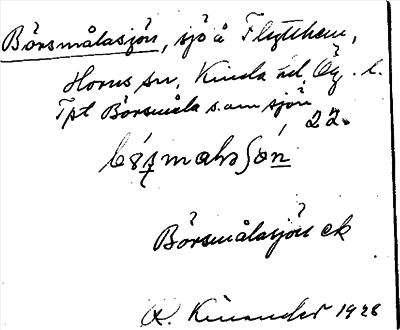 Börsmålasjön, sjö å Flytthem,
Horns sn, Kinda hd, Ög. l.
Tpt Börsmåla s.om sjön
22.
Börsmålasjön ek
R. Kinander 1928